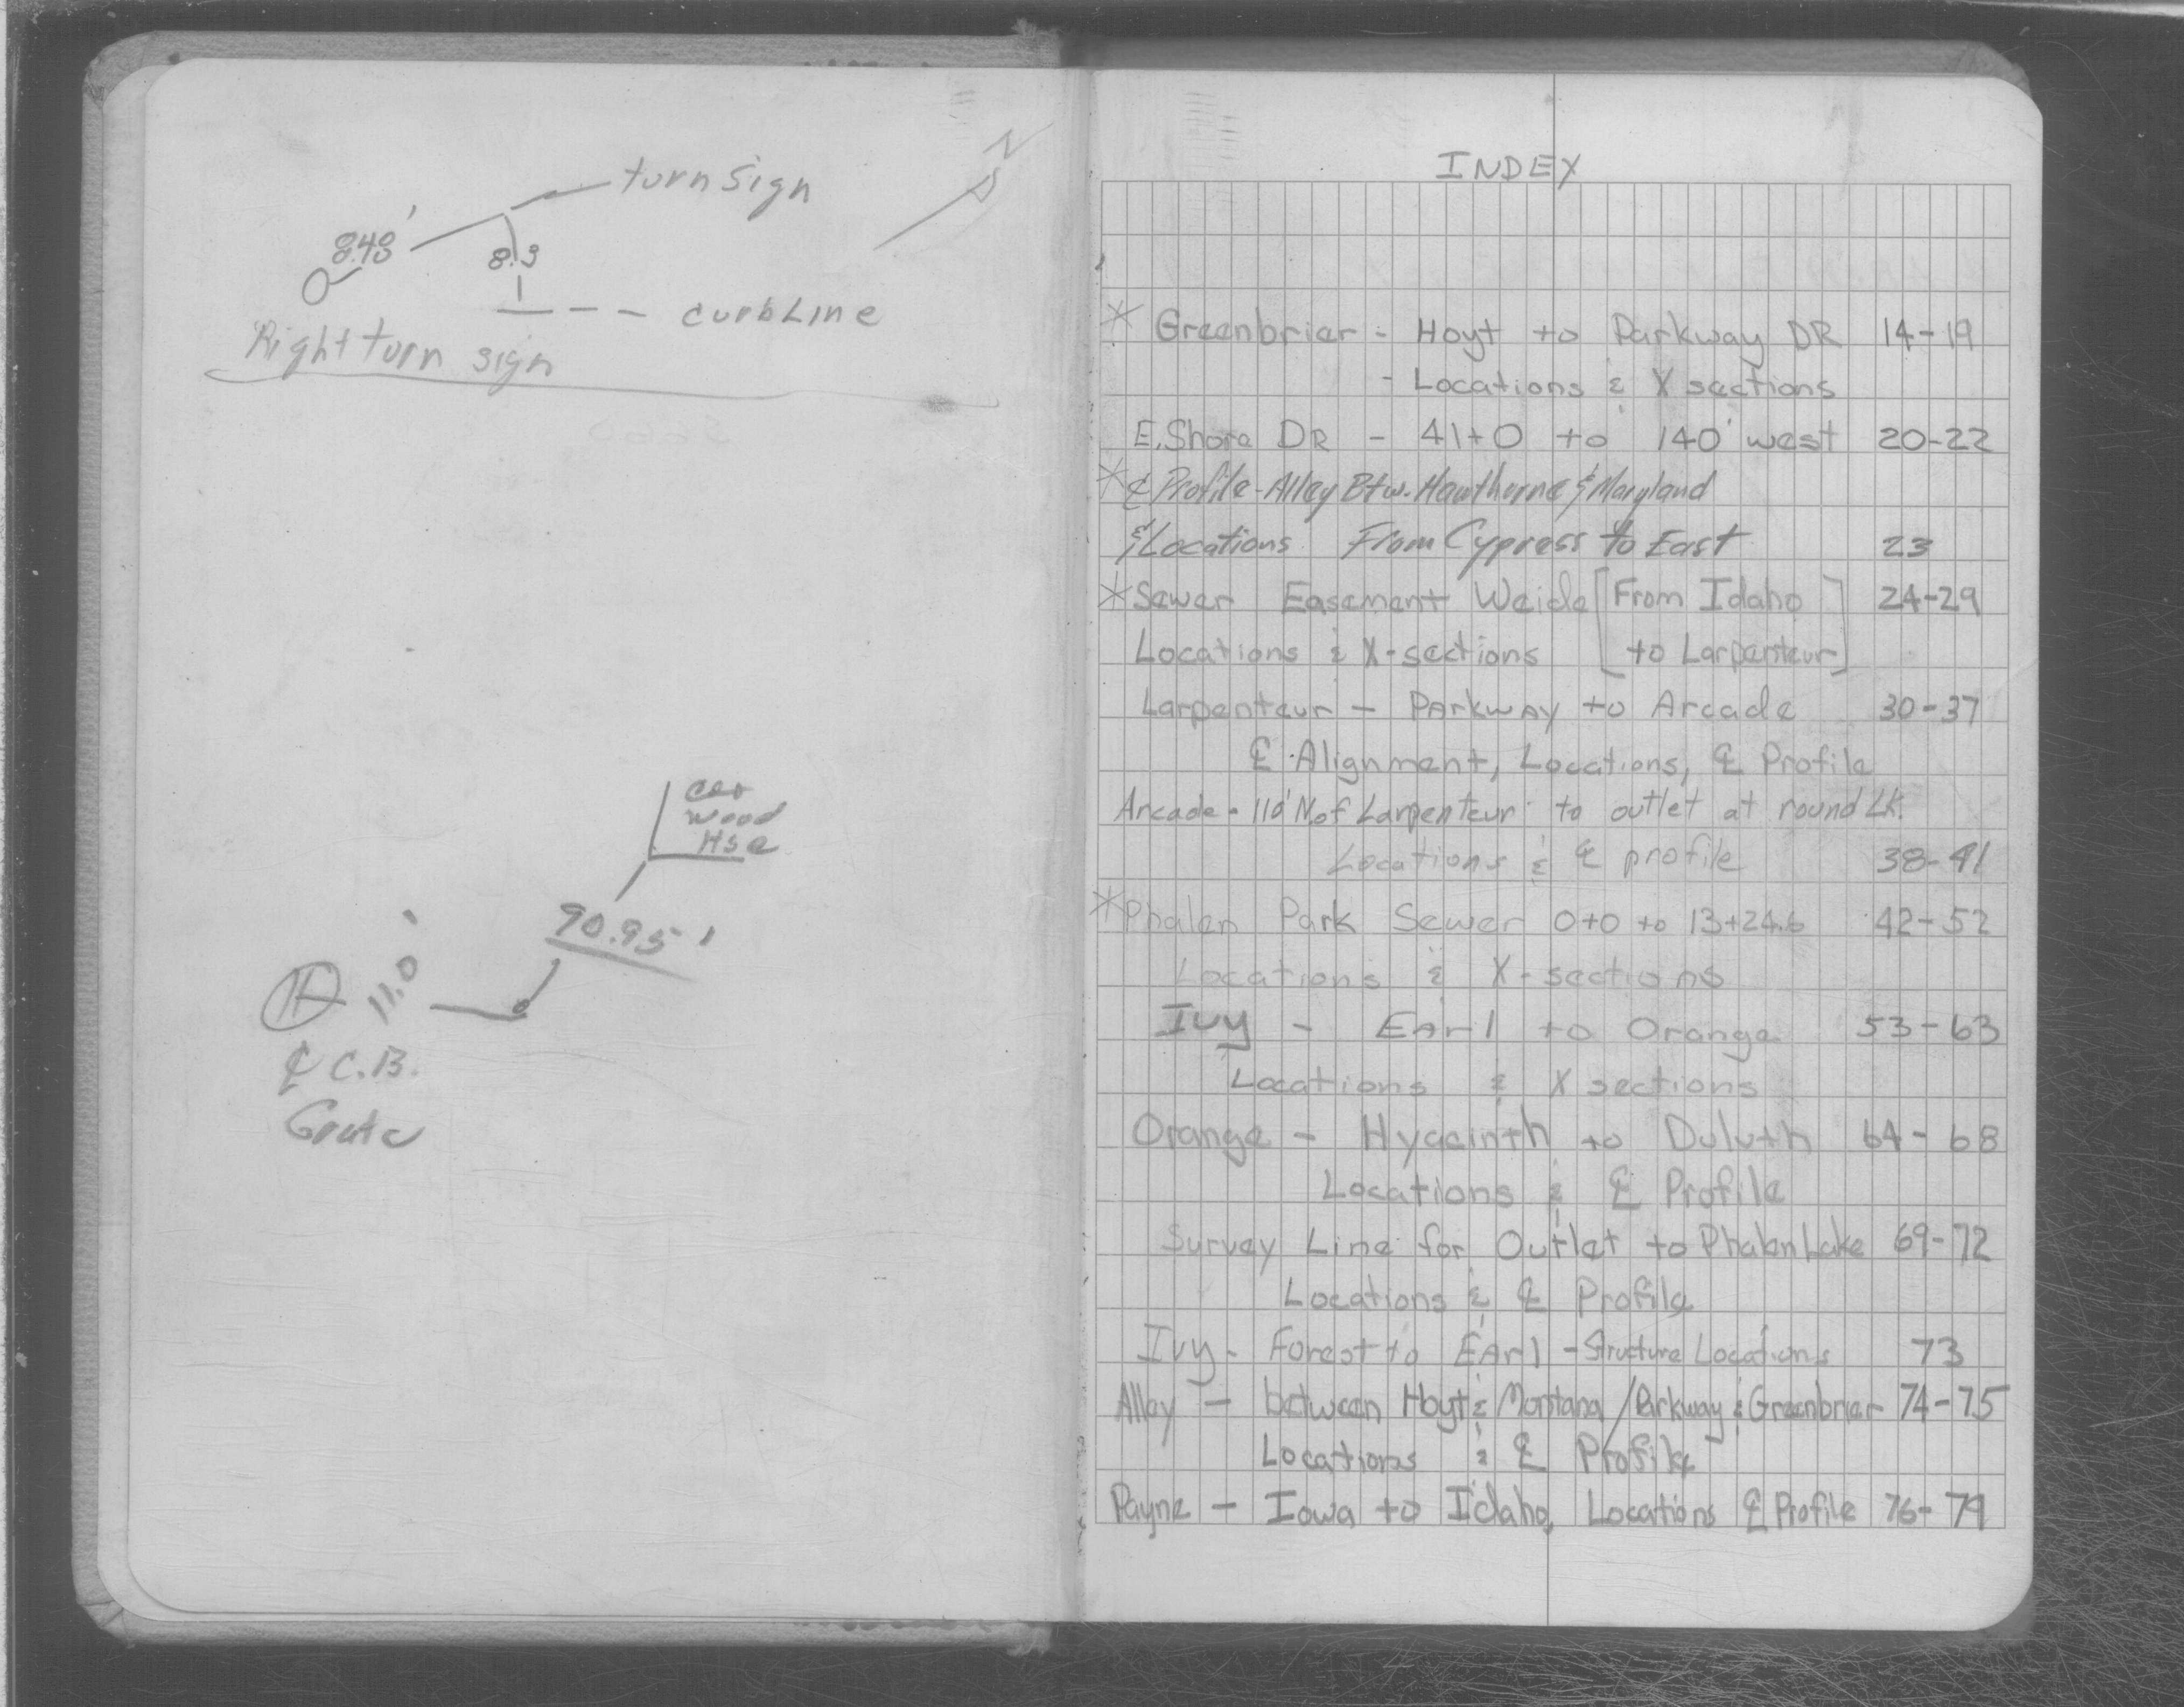 N
turn sign
8.48'
8.3
curb Line
Right turn sign
Cor
wood
Hse
90.95'
11.0'
℄ C.B.
Grate
INDEX
* Greenbrier - Hoyt to Parkway DR 14-19
- Locations & X sections
E. Shore DR - 41+0 to 140' west 20-22
* ℄ Profile - Alley Btw. Hawthorne & Maryland
& Locations From Cypress to East 23
* Sewer Easement Weide [From Idaho] 24-29
Locations & X-sections [to Larpenteur]
Larpenteur - Parkway to Arcade 30-37
℄ Alignment, Locations, ℄ Profile
Arcade - 110' N. of Larpenteur to outlet at round Lk.
Locations & ℄ profile 38-41
* Phalen Park Sewer 0+0 to 13+24.6 42-52
Locations & X-sections
Ivy - Earl to Orange 53-63
Locations & X sections
Orange - Hyacinth to Duluth 64-68
Locations & ℄ Profile
Survey Line for Outlet to Phalen Lake 69-72
Locations & ℄ Profile
Ivy - Forest to Earl - Structure Locations 73
Alley - between Hoyt & Montana / Parkway & Greenbrier 74-75
Locations & ℄ Profile
Payne - Iowa to Idaho, Locations ℄ Profile 76-79